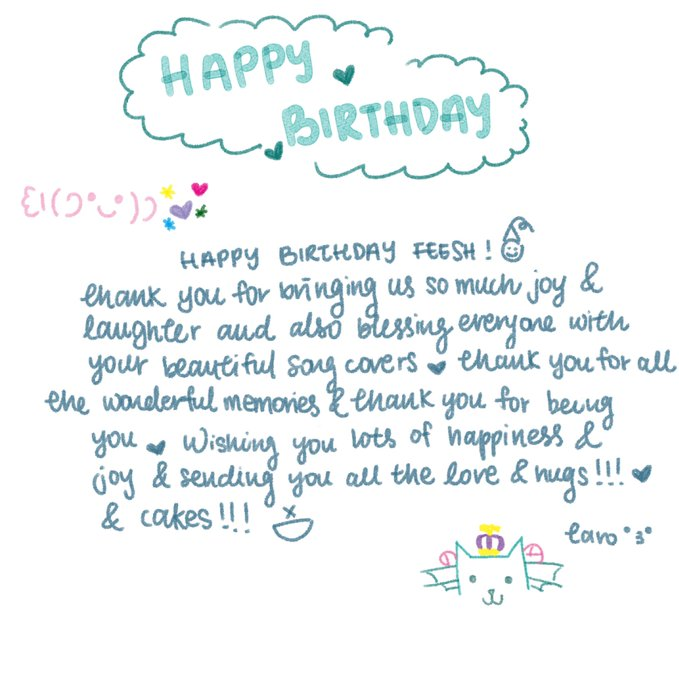 HAPPY
BIRTHDAY
HAPPY BIRTHDAY FEESH!
thank you for bringing us so much joy &
laughter and also blessing everyone with
your beautiful song covers ♥ thank you for all
the wonderful memories & thank you for being
you ♥ wishing you lots of happiness &
joy & sending you all the love & hugs!!! ♥
& cakes!!!
caro °3°